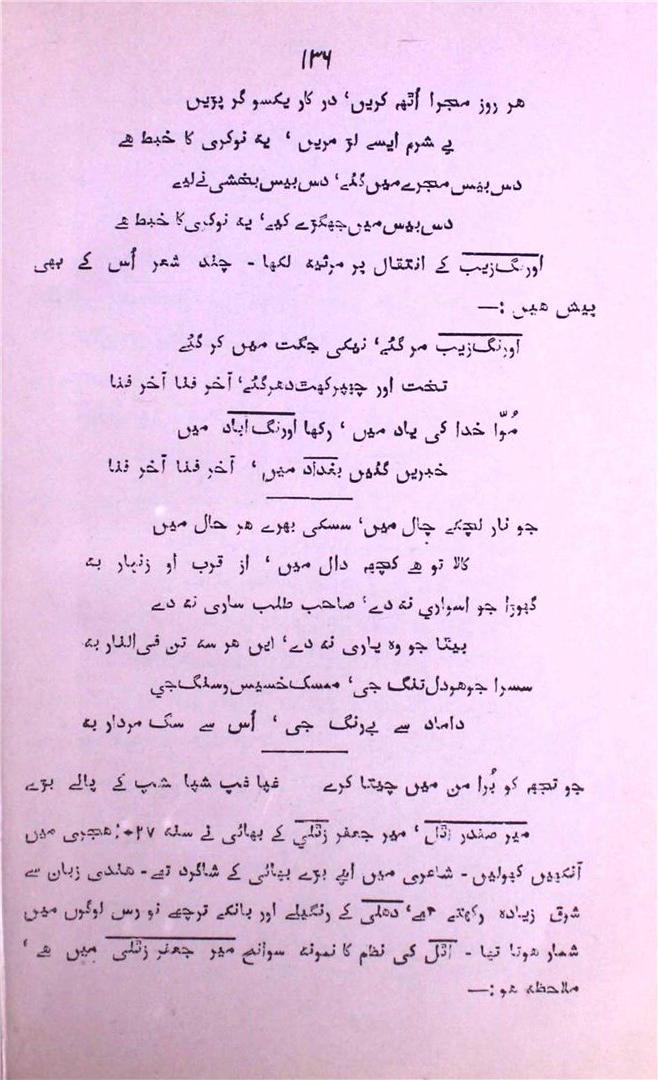 ۱۳۶
هر روز مجرا اُٹھ کریں، در کار یکسو گر پڑیں
بے شرم ایسے لڑ مریں ، یہ نوکری کا خبط ہے
دس بیس مجرے میں گئے، دس بیس بخشی نے لیے
دس بیس میں جھگڑے کیے، یہ نوکری کا خبط ہے
اورنگ زیب کے انتقال پر مرثیہ لکھا - چند شعر اُس کے بھی
پیش هیں :—
اورنگ زیب مر گئے، نیکی جگت میں کر گئے
تخت اور چھپر کھٹ دھر گئے، آخر فنا آخر فنا
مُوّا خدا کی یاد میں ، رکھا اورنگ اباد میں
خبریں گئیں بغداد میں، آخر فنا آخر فنا
جو نار لچکے چال میں، سسکی بھرے هر حال میں
کالا تو ہے کچھ دال میں ، از قرب او زنہار بہ
گھوڑا جو اسواری نہ دے، صاحب طلب ساری نہ دے
بیٹا جو وہ یاری نہ دے، ایں هر سہ تن فی النار بہ
سسرا جو هو دل تنگ جی، ممسک خسیس و سنگ جی
داماد سے بے رنگ جی ، اُس سے سگ مردار بہ
جو تجھ کو بُرا من میں چیتا کرے غپا غپ شپا شپ کے پالے پڑے
میر صفدر اٹل ، میر جعفر زٹلی کے بھائی نے سنہ ۱۰۲۷ هجری میں
آنکھیں کھولیں - شاعری میں اپنے بڑے بھائی کے شاگرد تھے - هندی زبان سے
شوق زیادہ رکھتے تھے، دهلی کے رنگیلے اور بانکے ترچھے نو رس لوگوں میں
شمار هوتا تھا - اٹل کی نظم کا نمونہ سوانح میر جعفر زٹلی میں ہے ،
ملاحظہ هو :—